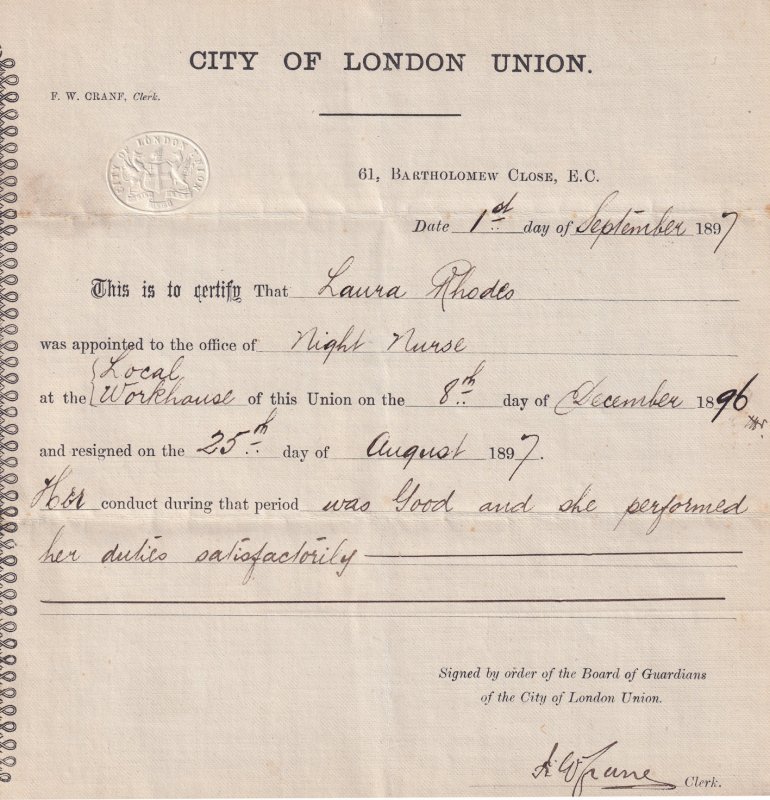 CITY OF LONDON UNION.
F. W. CRANE, Clerk.
CITY OF LONDON UNION
61, BARTHOLOMEW CLOSE, E.C.
Date 1st day of September 1897
This is to certify That Laura Rhodes
was appointed to the office of Night Nurse
Local
at the Workhouse of this Union on the 8th day of December 1896
and resigned on the 25th day of August 1897.
Her conduct during that period was Good and she performed
her duties satisfactorily
Signed by order of the Board of Guardians
of the City of London Union.
F W Crane Clerk.